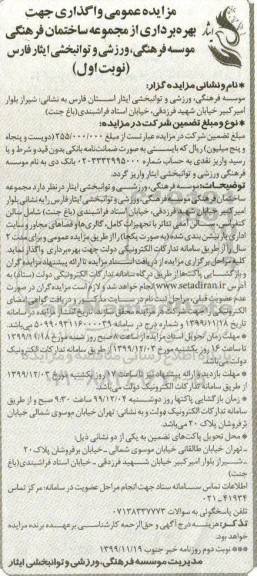 مزایده عمومی واگذاری جهت
بهره برداری از مجموعه ساختمان فرهنگی
موسسه فرهنگی، ورزشی و توانبخشی ایثار فارس
(نوبت اول)
* نام و نشانی مزایده گزار:
موسسه فرهنگی، ورزشی و توانبخشی ایثار استان فارس به نشانی: شیراز بلوار
امیرکبیر خیابان شهید فرزدقی، خیابان استاد فراشبندی (باغ جنت)
* نوع و مبلغ تضمین شرکت در مزایده:
مبلغ تضمین شرکت در مزایده عبارتست از مبلغ ۲۵۵/۰۰۰/۰۰۰ (دویست و پنجاه
و پنج میلیون) ریال که بایستی به صورت ضمانت نامه بانکی بدون قید و شرط و یا
رسید واریز نقدی به حساب شماره ۰۲۰۳۳۳۲۹۹۵۰۰۰ بانک دی به نام موسسه
فرهنگی ورزشی و توانبخشی ایثار واریز گردد.
توضیحات: موسسه فرهنگی، ورزشی و توانبخشی ایثار در نظر دارد مجموعه
ساختمان فرهنگی موسسه فرهنگی، ورزشی و توانبخشی ایثار فارس را به نشانی بلوار
امیرکبیر خیابان شهید فرزدقی، خیابان استاد فراشبندی (باغ جنت) شامل سالن
کنفرانس، سالن آمفی تئاتر با تجهیزات کامل، گالری ها و فضاهای مجاور و سایت
اداری پارتیشن بندی شده (به صورت یکجا) را از طریق مزایده عمومی و برای مدت ۲
سال و از طریق سامانه تدارکات الکترونیکی دولت جهت بهره برداری واگذار نماید.
کلیه مراحل برگزاری مزایده از دریافت اسناد مزایده تا ارائه پیشنهاد مزایده گران
و بازگشایی پاکت ها از طریق درگاه سامانه تدارکات الکترونیکی دولت (ستاد) به
آدرس www.setadiran.ir انجام خواهد شد و لازم است مزایده گران در صورت
عدم عضویت قبلی، مراحل ثبت نام در سایت مذکور و دریافت گواهی امضای
الکترونیکی را جهت شرکت در مزایده محقق سازند. تاریخ انتشار مزایده در سامانه
تاریخ ۱۳۹۹/۱۱/۱۸ و شماره درج در سامانه ۵۰۹۹۰۹۳۱۱۶۰۰۰۰۳۹ می باشد.
* مهلت زمان تحویل اسناد مزایده از ساعت ۸ صبح روز شنبه مورخ ۱۳۹۹/۱۱/۱۸
تا ساعت ۱۶ روز یکشنبه مورخ ۱۳۹۹/۱۲/۰۳ از طریق سامانه تدارکات الکترونیک
دولت می باشد.
* مهلت بازدید و ارائه پیشنهاد تا ساعت ۱۷ روز یکشنبه مورخ ۱۳۹۹/۱۲/۰۳
از طریق سامانه تدارکات الکترونیک دولت می باشد.
* زمان بازگشایی پاکت ها روز دوشنبه ۹۹/۱۲/۰۴ ساعت ۹:۳۰ صبح و از طریق
سامانه تدارکات الکترونیک دولت و به نشانی: تهران خیابان موسوی شمالی خیابان
برفروشان پلاک ۲۰ می باشد.
* محل تحویل پاکت های تضمین به یکی از دو نشانی ذیل:
- تهران خیابان طالقانی خیابان موسوی شمالی - خیابان برفروشان پلاک ۲۰
- شیراز بلوار امیر کبیر خیابان شهید فرزدقی - خیابان استاد فراشبندی (باغ
جنت)
اطلاعات تماس سامانه ستاد جهت انجام مراحل عضویت در سامانه: مرکز تماس
۰۲۱-۴۱۹۳۴
تلفن پاسخگویی به سوالات ۰۷۱۳۸۳۳۷۷۷۳
تذکر: هزینه درج آگهی و حق الزحمه کارشناسی بر عهده برنده مزایده
خواهد بود.
* نوبت دوم روزنامه خبر جنوب ۱۳۹۹/۱۱/۱۹
مدیریت موسسه فرهنگی، ورزشی و توانبخشی ایثار